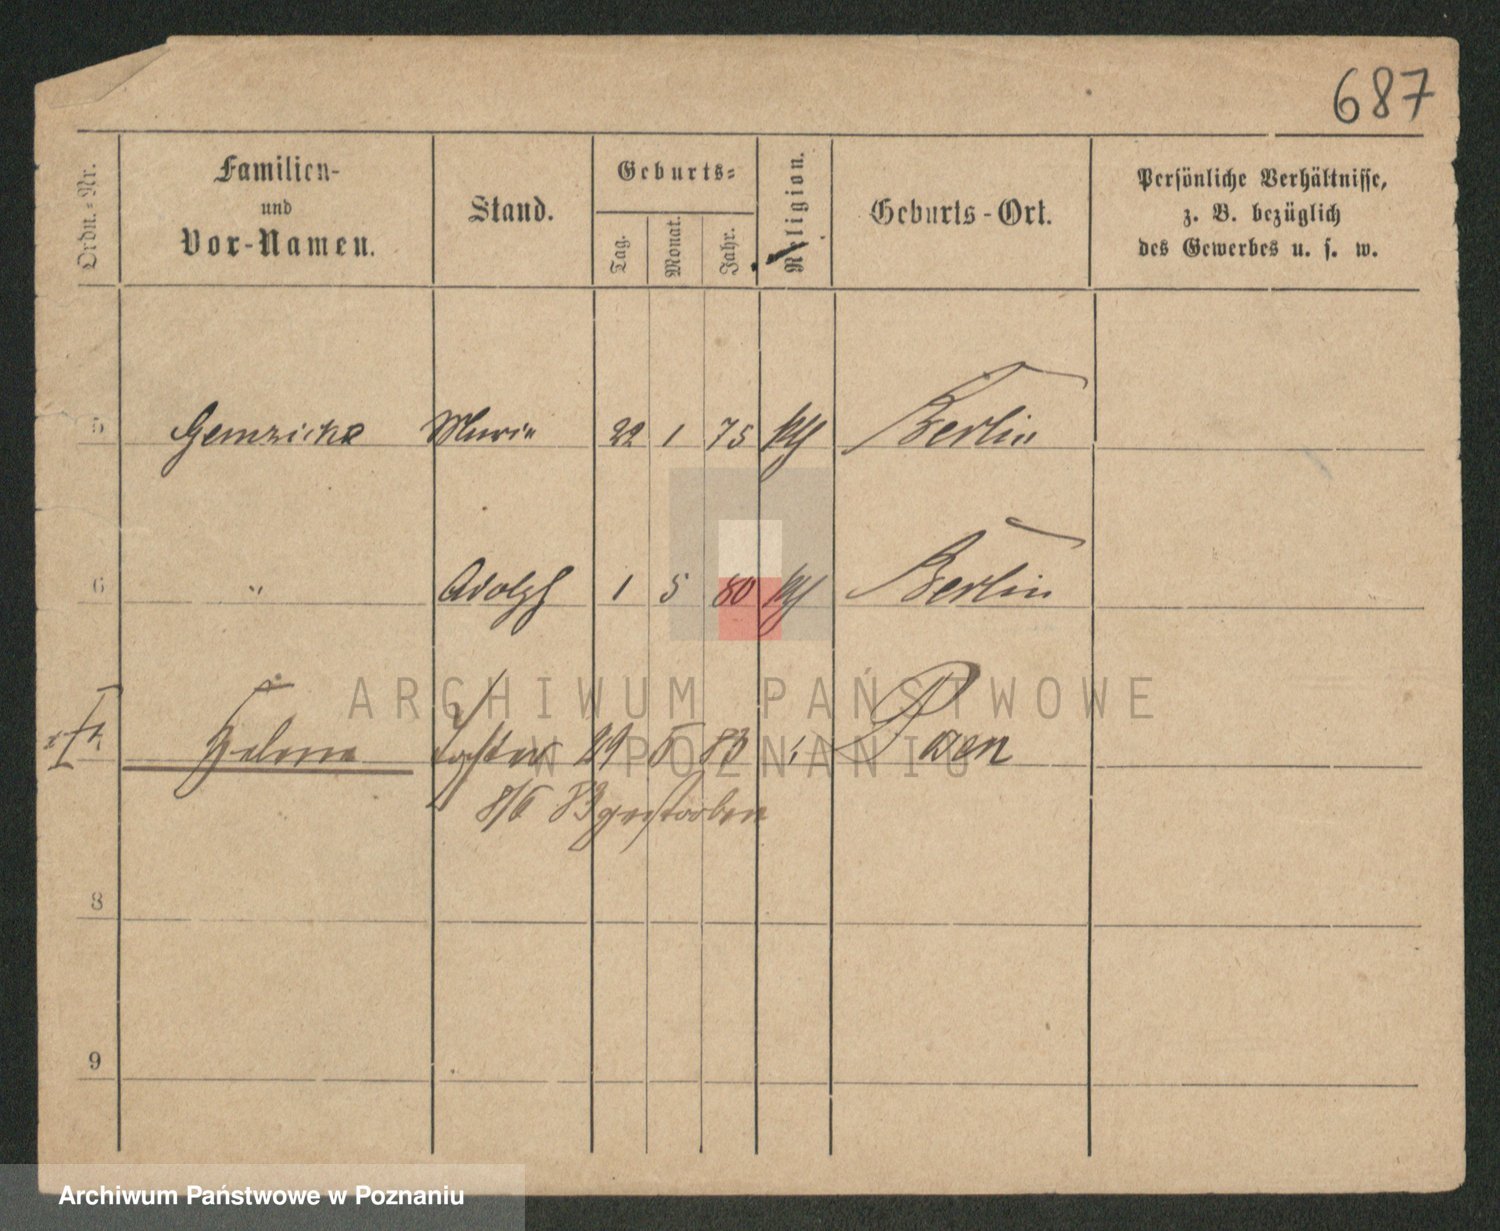 687
Ordn.-Nr.
Familien-
und
Vor-Namen.
Stand.
Geburts-
Tag.
Monat.
Jahr.
Religion.
Geburts-Ort.
Persönliche Verhältnisse,
z. B. bezüglich
des Gewerbes u. s. w.
5 Gemzicka Marie 22 1 75 Berlin
6 " Adolph 1 5 80 Berlin
ARCHIWUM PAŃSTWOWE
W POZNANIU
Helene Tochter 29 5 83 Posen
8/6 83 gestorben
8
9
Archiwum Państwowe w Poznaniu